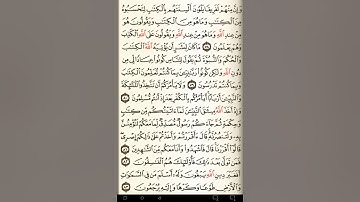 وَإِنَّ مِنْهُمْ لَفَرِيقًا يَلْوُۥنَ أَلْسِنَتَهُم بِٱلْكِتَٰبِ لِتَحْسَبُوهُ
مِنَ ٱلْكِتَٰبِ وَمَا هُوَ مِنَ ٱلْكِتَٰبِ وَيَقُولُونَ هُوَ
مِنْ عِندِ ٱللَّهِ وَمَا هُوَ مِنْ عِندِ ٱللَّهِ وَيَقُولُونَ عَلَى ٱللَّهِ ٱلْكَذِبَ
وَهُمْ يَعْلَمُونَ ٧٨ مَا كَانَ لِبَشَرٍ أَن يُؤْتِيَهُ ٱللَّهُ ٱلْكِتَٰبَ
وَٱلْحُكْمَ وَٱلنُّبُوَّةَ ثُمَّ يَقُولَ لِلنَّاسِ كُونُوا۟ عِبَادًا لِّى مِن
دُونِ ٱللَّهِ وَلَٰكِن كُونُوا۟ رَبَّٰنِيِّـۧنَ بِمَا كُنتُمْ تُعَلِّمُونَ ٱلْكِتَٰبَ
وَبِمَا كُنتُمْ تَدْرُسُونَ ٧٩ وَلَا يَأْمُرَكُمْ أَن تَتَّخِذُوا۟ ٱلْمَلَٰٓئِكَةَ
وَٱلنَّبِيِّـۧنَ أَرْبَابًا أَيَأْمُرُكُم بِٱلْكُفْرِ بَعْدَ إِذْ أَنتُم مُّسْلِمُونَ ٨٠
وَإِذْ أَخَذَ ٱللَّهُ مِيثَٰقَ ٱلنَّبِيِّـۧنَ لَمَآ ءَاتَيْتُكُم مِّن كِتَٰبٍ
وَحِكْمَةٍ ثُمَّ جَآءَكُمْ رَسُولٌ مُّصَدِّقٌ لِّمَا مَعَكُمْ لَتُؤْمِنُنَّ
بِهِۦ وَلَتَنصُرُنَّهُۥ قَالَ ءَأَقْرَرْتُمْ وَأَخَذْتُمْ عَلَىٰ ذَٰلِكُمْ إِصْرِى
قَالُوٓا۟ أَقْرَرْنَا قَالَ فَٱشْهَدُوا۟ وَأَنَا۠ مَعَكُم مِّنَ ٱلشَّٰهِدِينَ ٨١
فَمَن تَوَلَّىٰ بَعْدَ ذَٰلِكَ فَأُو۟لَٰٓئِكَ هُمُ ٱلْفَٰسِقُونَ ٨٢
أَفَغَيْرَ دِينِ ٱللَّهِ يَبْغُونَ وَلَهُۥٓ أَسْلَمَ مَن فِى ٱلسَّمَٰوَٰتِ
وَٱلْأَرْضِ طَوْعًا وَكَرْهًا وَإِلَيْهِ يُرْجَعُونَ ٨٣